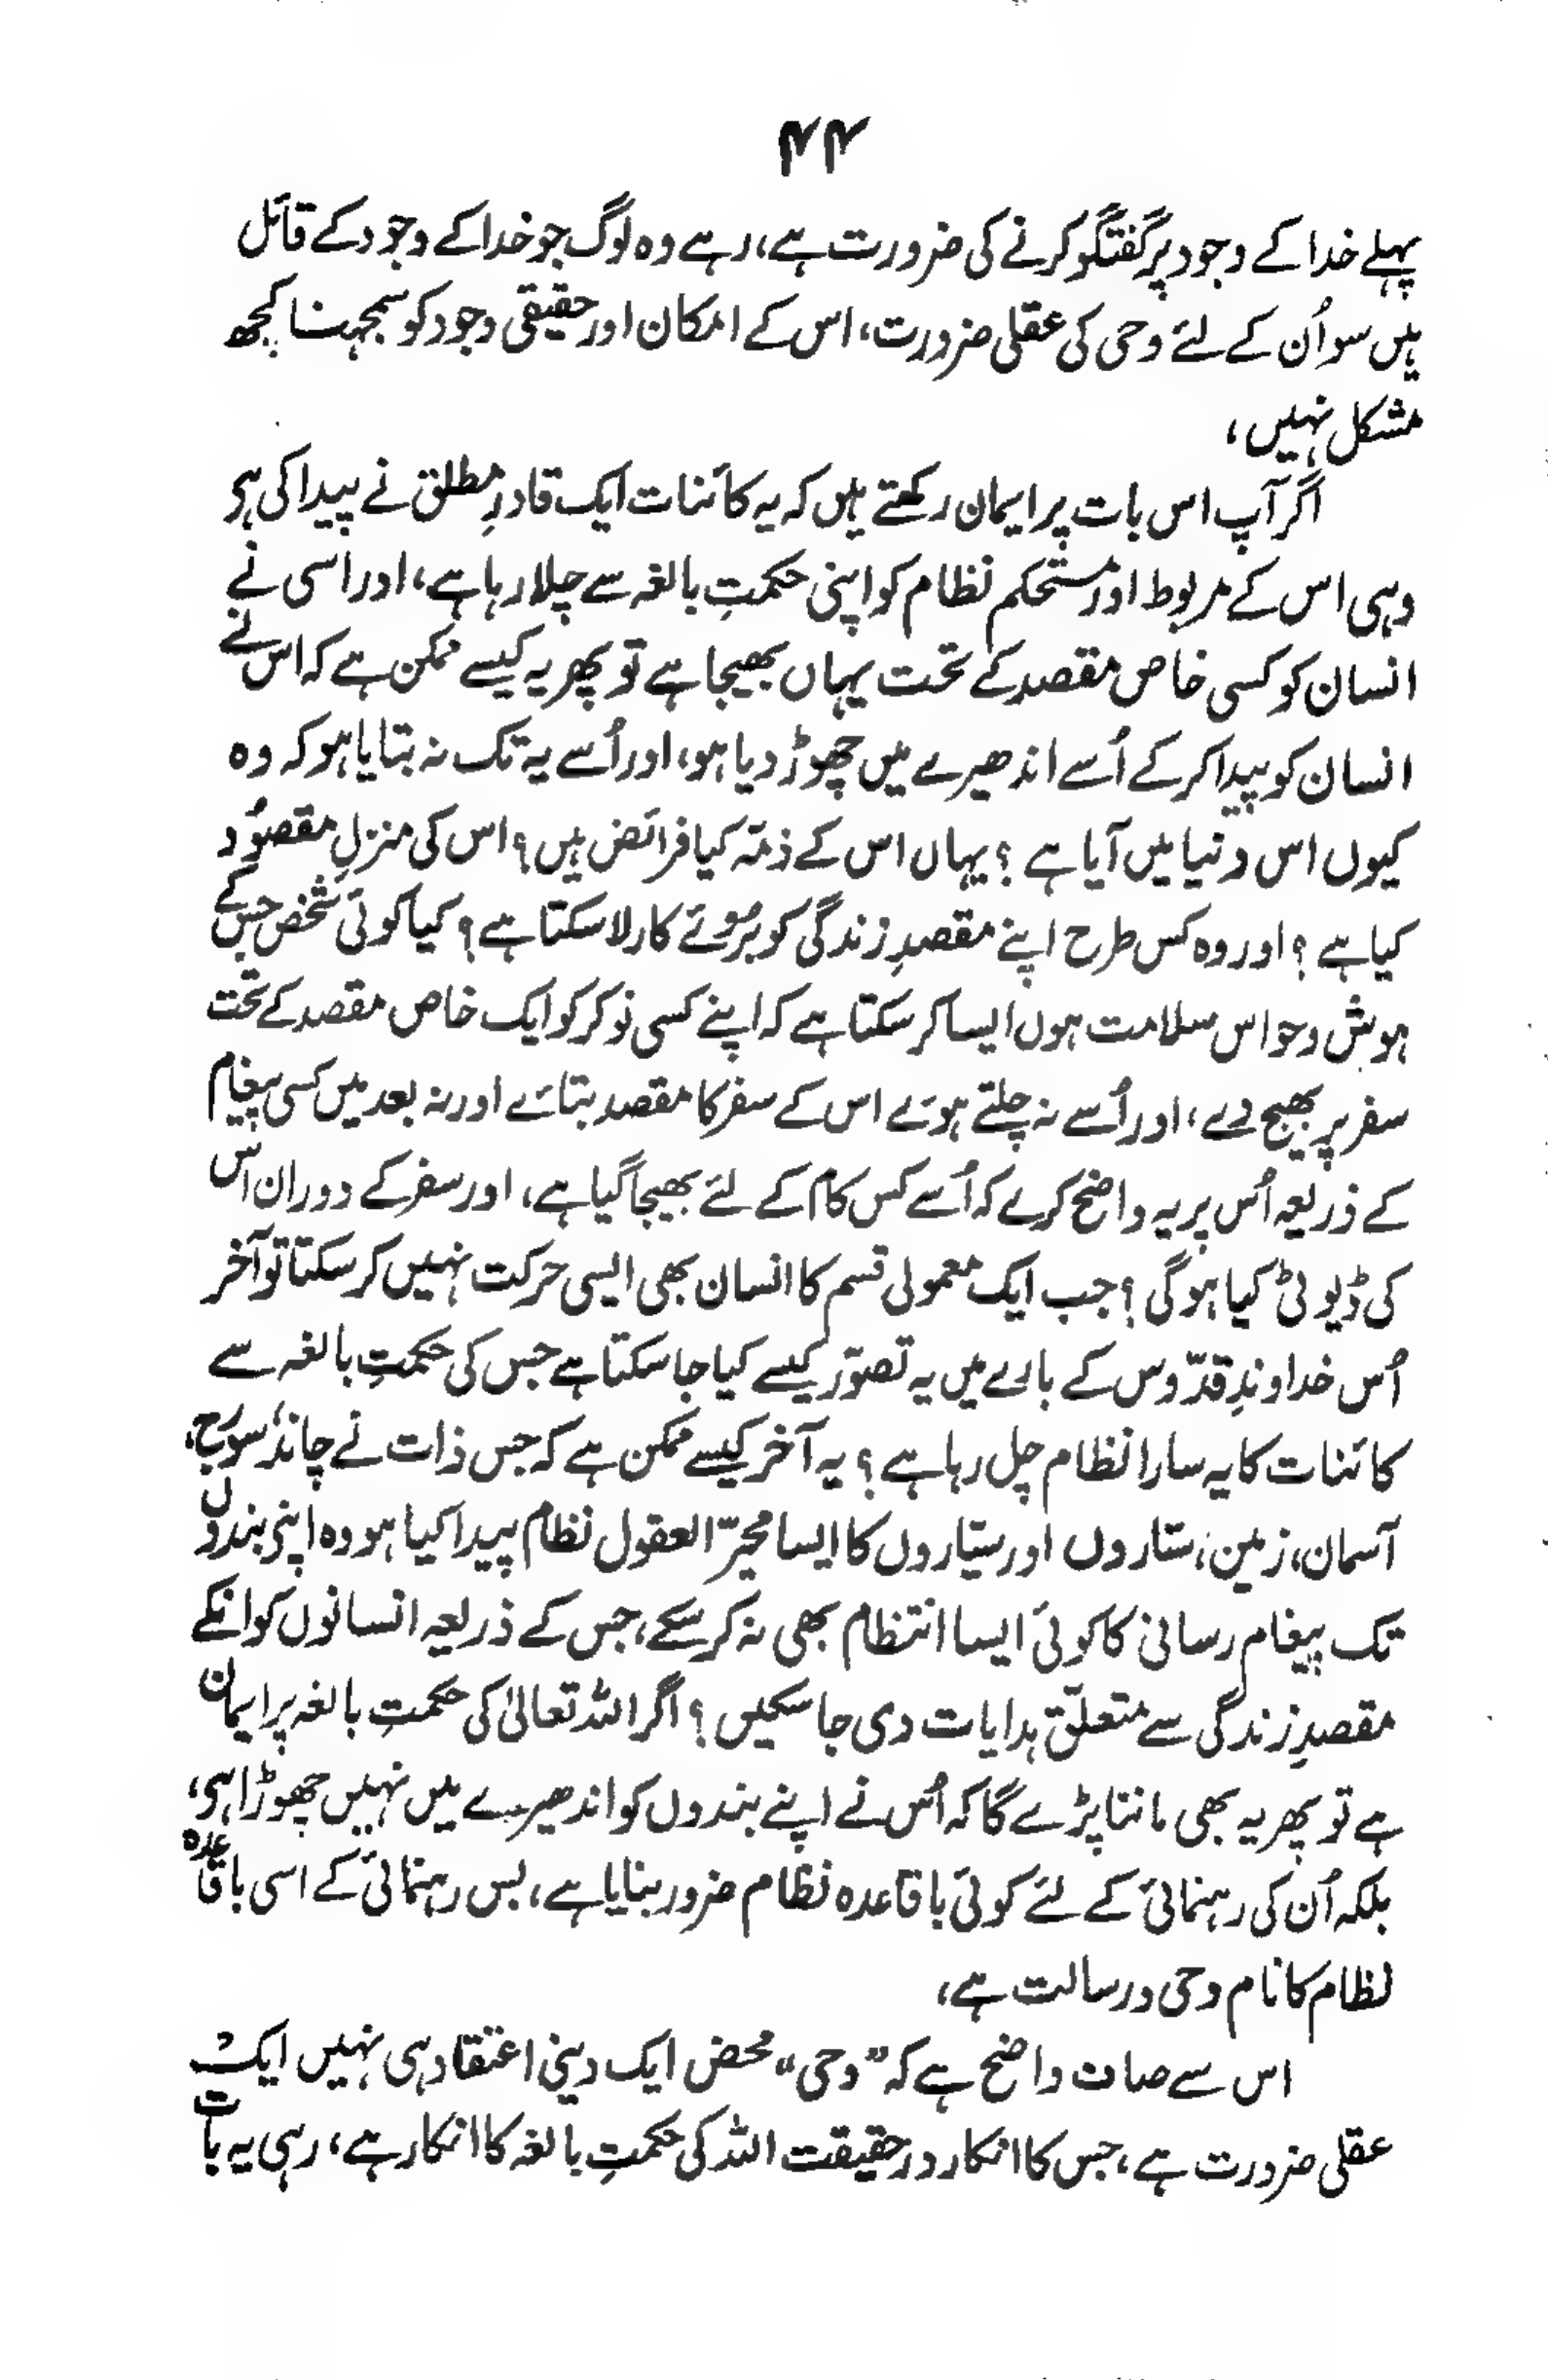 ۴۴
پہلے خدا کے وجود پر گفتگو کرنے کی ضرورت ہے، رہے وہ لوگ جو خدا کے وجود کے قائل
ہیں سو اُن کے لئے وحی کی عقلی ضرورت، اس کے امکان اور حقیقی وجود کو سمجہنا کچھ
مشکل نہیں،
اگر آپ اس بات پر ایمان رکھتے ہیں کہ یہ کائنات ایک قادرِ مطلق نے پیدا کی ہی
وہی اس کے مربوط اور مستحکم نظام کو اپنی حکمتِ بالغہ سے چلا رہا ہے، اور اسی نے
انسان کو کسی خاص مقصد کے تحت یہاں بھیجا ہے تو پھر یہ کیسے ممکن ہے کہ اس نے
انسان کو پیدا کر کے اُسے اندھیرے میں چھوڑ دیا ہو، اور اُسے یہ تک نہ بتایا ہو کہ وہ
کیوں اس دنیا میں آیا ہے ؟ یہاں اس کے ذمّہ کیا فرائض ہیں؟ اس کی منزلِ مقصوُد
کیا ہے ؟ اور وہ کس طرح اپنے مقصدِ زندگی کو بروُئے کار لا سکتا ہے؟ کیا کوئی شخص جس کے
ہوش و حواس سلامت ہوں ایسا کر سکتا ہے کہ اپنے کسی نوکر کو ایک خاص مقصد کے تحت
سفر پر بھیج دے، اور اُسے نہ چلتے ہوئے اس کے سفر کا مقصد بتائے اور نہ بعد میں کسی پیغام
کے ذریعہ اُس پر یہ واضح کرے کہ اُسے کس کام کے لئے بھیجا گیا ہے، اور سفر کے دوران اس
کی ڈیوٹی کیا ہوگی ؟ جب ایک معمولی قسم کا انسان بھی ایسی حرکت نہیں کر سکتا تو آخر
اُس خداوندِ قدّوس کے بارے میں یہ تصوّر کیسے کیا جا سکتا ہے جس کی حکمتِ بالغہ سے
کائنات کا یہ سارا نظام چل رہا ہے ؟ یہ آخر کیسے ممکن ہے کہ جس ذات نے چاند، سورج،
آسمان، زمین، ستاروں اور سیّاروں کا ایسا محیّر العقول نظام پیدا کیا ہو وہ اپنے بندوں
تک پیغام رسانی کا کوئی ایسا انتظام بھی نہ کر سکے، جس کے ذریعہ انسانوں کو انکے
مقصدِ زندگی سے متعلّق ہدایات دی جا سکیں ؟ اگر اللہ تعالیٰ کی حکمتِ بالغہ پر ایمان
ہے تو پھر یہ بھی ماننا پڑے گا کہ اُس نے اپنے بندوں کو اندھیرے میں نہیں چھوڑا ہی،
بلکہ اُن کی رہنمائی کے لئے کوئی باقاعدہ نظام ضرور بنایا ہے، بس رہنمائی کے اسی باقاعدہ
نظام کا نام وحی و رسالت ہے،
اس سے صاف واضح ہے کہ "وحی" محض ایک دینی اعتقاد ہی نہیں ایک
عقلی ضرورت ہے، جس کا انکار درحقیقت اللہ کی حکمتِ بالغہ کا انکار ہے، رہی یہ بات